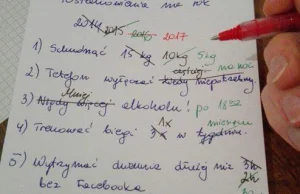 postanowienia na rok
2014 2015 2016 2017
1) Schudnąć 15 kg 10 kg 5 kg
2) Telefon wyłączać na noc
częściej
kiedy niepotrzebny.
mniej
3) Nigdy więcej alkoholu! po 18:32
1x miesiącu
4) Trenować biegi 3x w tygodniu.
5) Wytrzymać dłużej niż 3h
2h
bez Facebooka